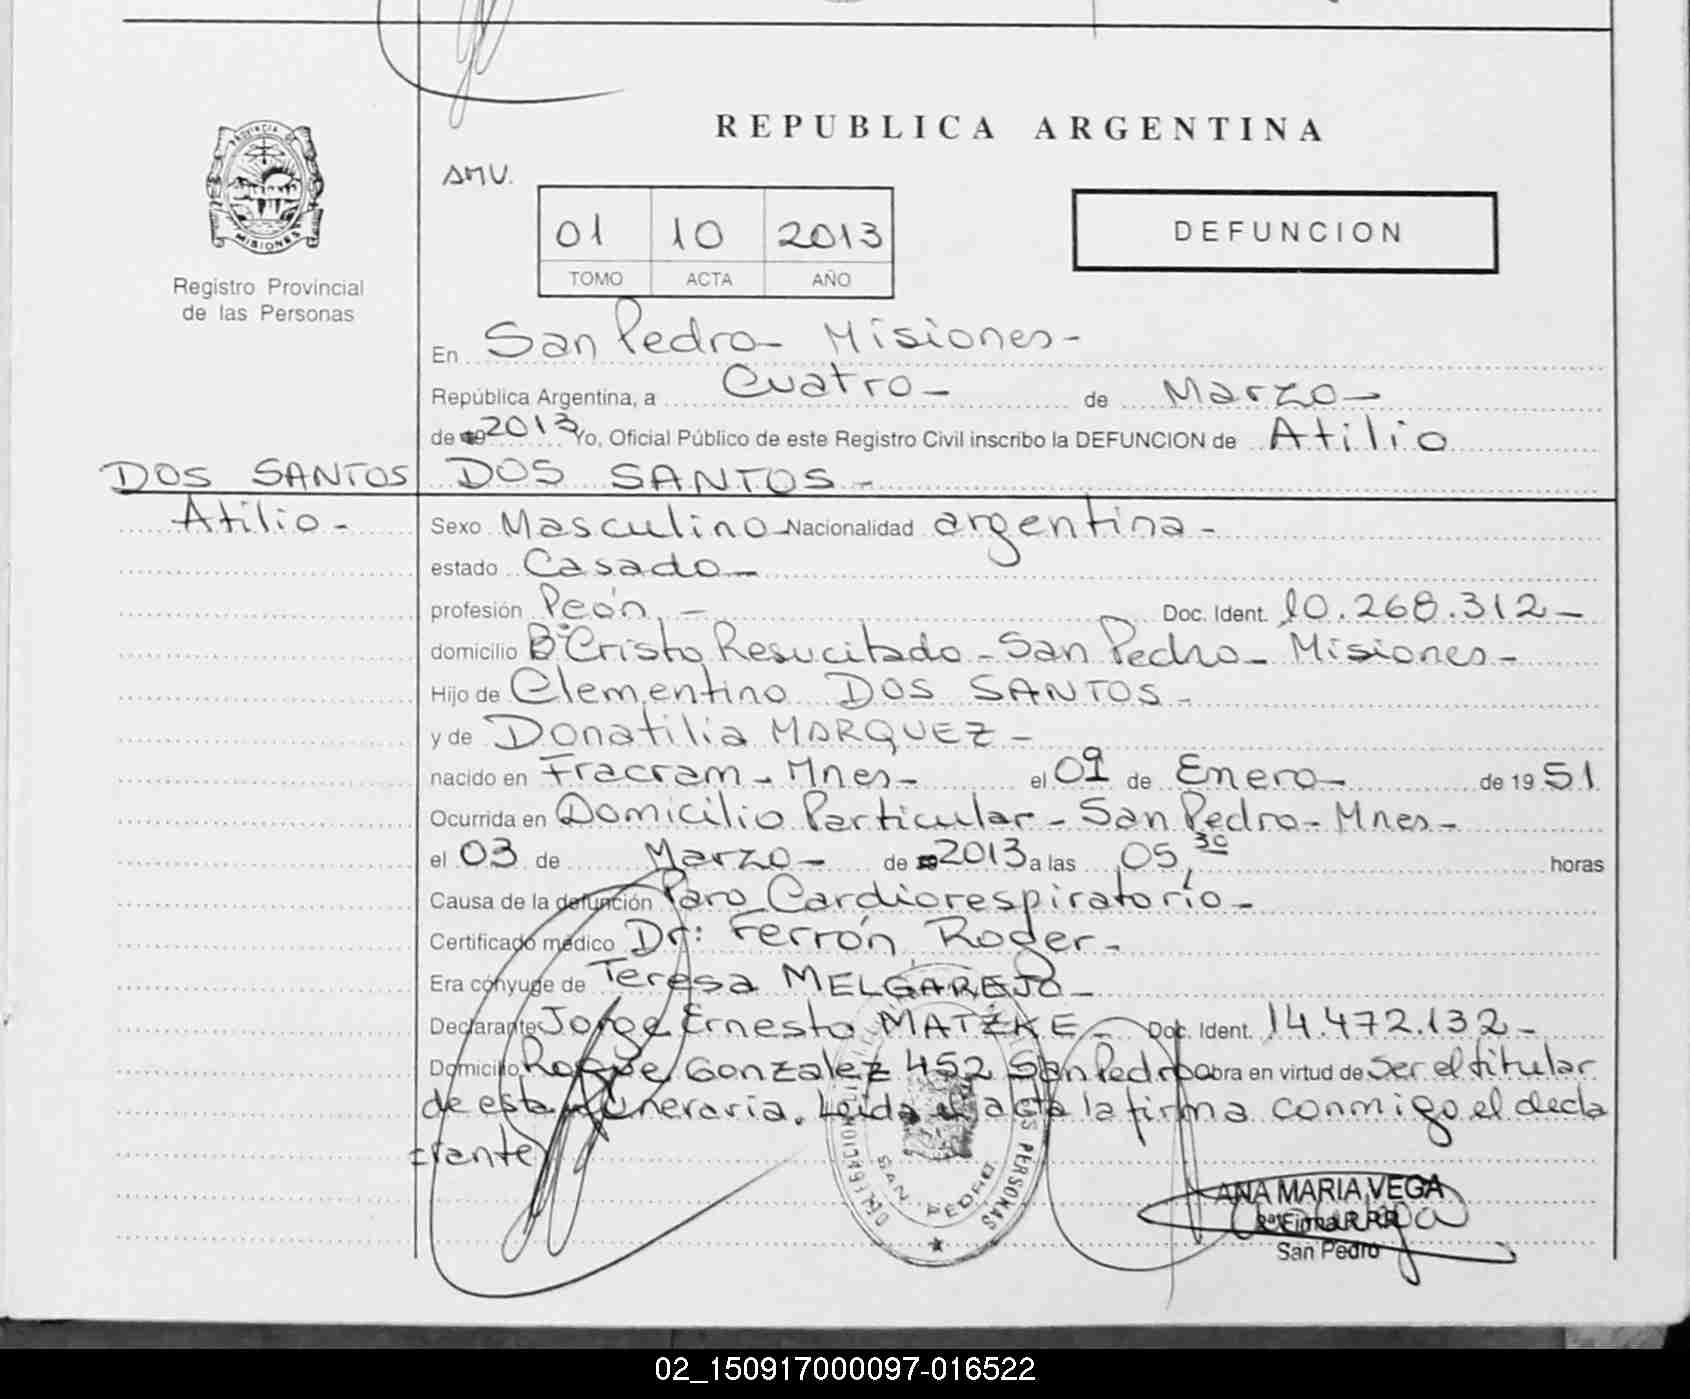 REPUBLICA ARGENTINA
PROVINCIA DE
MISIONES
Registro Provincial
de las Personas
AMV.
01 10 2013
TOMO ACTA AÑO
DEFUNCION
En San Pedro - Misiones -
República Argentina, a Cuatro - de Marzo -
de 19 2013 Yo, Oficial Público de este Registro Civil inscribo la DEFUNCION de Atilio
DOS SANTOS DOS SANTOS -
Atilio - Sexo Masculino - Nacionalidad argentina -
estado Casado -
profesión Peón - Doc. Ident. 10.268.312 -
domicilio Bº Cristo Resucitado - San Pedro - Misiones -
Hijo de Clementino DOS SANTOS -
y de Donatilia MARQUEZ -
nacido en Fracram - Mnes - el 09 de Enero - de 19 51
Ocurrida en Domicilio Particular - San Pedro - Mnes -
el 03 de Marzo - de 2013 a las 05,30 horas
Causa de la defunción Paro Cardiorespiratorio -
Certificado médico Dr: Ferrón Roger -
Era cónyuge de Teresa MELGAREJO -
Declarante Jorge Ernesto MATZKE - Doc. Ident. 14.472.132 -
Domicilio Roque Gonzalez 452 San Pedro obra en virtud de Ser el titular
de esta funeraria. Leida el acta la firma conmigo el decla
rante
PERSONAS
SAN PEDRO
ANA MARIA VEGA
2ª Firma R.P.P.
San Pedro
02_150917000097-016522